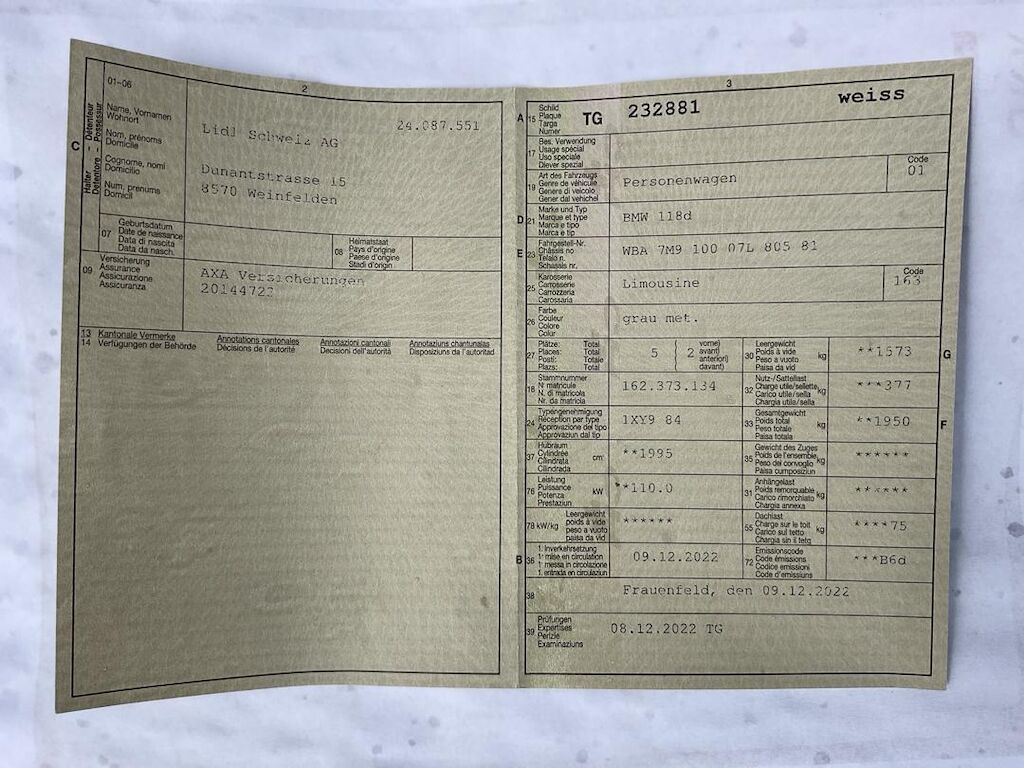 2
01-06
C
Halter - Détenteur
Detentore - Possessur
Name, Vornamen
Wohnort
Nom, prénoms
Domicile
Cognome, nomi
Domicilio
Num, prenums
Domicil
24.087.551
Lidl Schweiz AG
Dunantstrasse 15
8570 Weinfelden
07
Geburtsdatum
Date de naissance
Data di nascita
Data da nasch.
08
Heimatstaat
Pays d'origine
Paese d'origine
Stadi d'origin
09
Versicherung
Assurance
Assicurazione
Assicuranza
AXA Versicherungen
2014472
13 Kantonale Vermerke Annotations cantonales Annotazioni cantonali Annotaziuns chantunalas
14 Verfügungen der Behörde Décisions de l'autorité Decisioni dell'autorità Disposiziuns da l'autoritad
3
A
15
Schild
Plaque
Targa
Numer
TG 232881 weiss
17
Bes. Verwendung
Usage spécial
Uso speciale
Diever spezial
19
Art des Fahrzeugs
Genre de véhicule
Genere di veicolo
Gener dal vehichel
Personenwagen
Code
01
D
21
Marke und Typ
Marque et type
Marca e tipo
Marca e tip
BMW 118d
E
23
Fahrgestell-Nr.
Châssis no
Telaio n.
Schassis nr.
WBA 7M9 100 07L 805 81
25
Karosserie
Carrosserie
Carrozzeria
Carossaria
Limousine
Code
163
26
Farbe
Couleur
Colore
Color
grau met.
27
Plätze: Total
Places: Total
Posti: Totale
Plazs: Total
5
( 2 vorne)
avant)
anteriori)
davant)
30
Leergewicht
Poids à vide
Peso a vuoto
Paisa da vid
kg
**1573
G
18
Stammnummer
N° matricule
N. di matricola
Nr. da matricla
162.373.134
32
Nutz-/Sattellast
Charge utile/sellette
Carico utile/sella
Chargia utila/sella
kg
***377
24
Typengenehmigung
Réception par type
Approvazione del tipo
Approvaziun dal tip
1XY9 84
33
Gesamtgewicht
Poids total
Peso totale
Paisa totala
kg
**1950
F
37
Hubraum
Cylindrée
Cilindrata
Cilindrada
cm³
**1995
35
Gewicht des Zuges
Poids de l'ensemble
Peso del convoglio
Paisa cumposiziun
kg
******
76
Leistung
Puissance
Potenza
Prestaziun
kW
**110.0
31
Anhängelast
Poids remorquable
Carico rimorchiato
Chargia annexa
kg
******
78 kW/kg
Leergewicht
poids à vide
peso a vuoto
paisa da vid
******
55
Dachlast
Charge sur le toit
Carico sul tetto
Chargia sin il tetg
kg
****75
B
36
1. Inverkehrsetzung
1re mise en circulation
1a messa in circolazione
1. entrada en circulaziun
09.12.2022
72
Emissionscode
Code émissions
Codice emissioni
Code d'emissiuns
***B6d
38
Frauenfeld, den 09.12.2022
39
Prüfungen
Expertises
Perizie
Examinaziuns
08.12.2022 TG